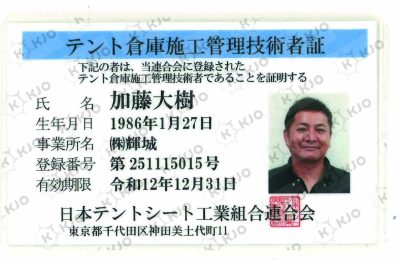 テント倉庫施工管理技術者証
下記の者は、当連合会に登録された
テント倉庫施工管理技術者であることを証明する
氏名 加藤大樹
生年月日 1986年1月27日
事業所名 ㈱輝城
登録番号 第251115015号
有効期限 令和12年12月31日
日本テントシート工業組合連合会
東京都千代田区神田美土代町11
KJO